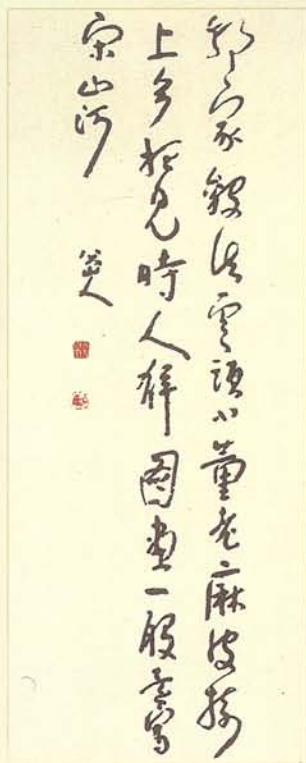 郭家皴法雲頭小董老麻皮樹
上多想見時人解圖畫一寫
宋山河
八大山人